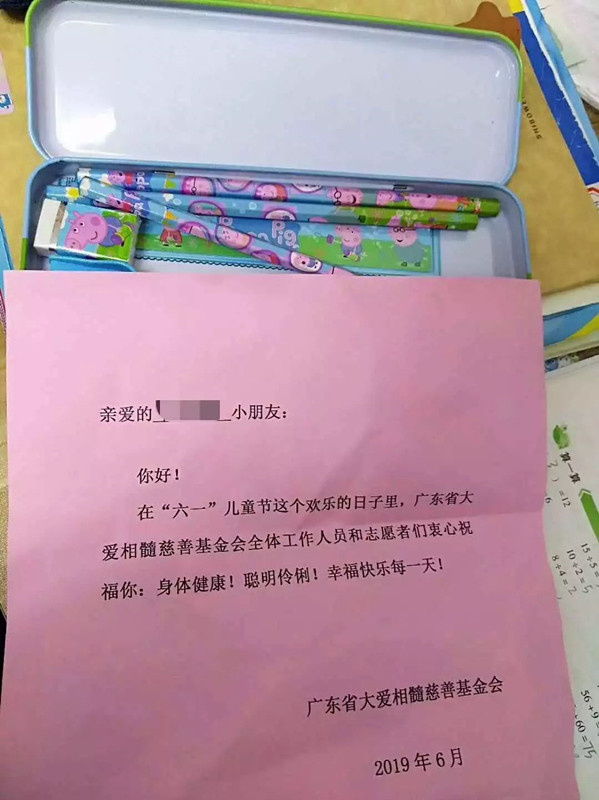 亲爱的 小朋友：
你好！
在“六一”儿童节这个欢乐的日子里，广东省大
爱相髓慈善基金会全体工作人员和志愿者们衷心祝
福你：身体健康！聪明伶俐！幸福快乐每一天！
广东省大爱相髓慈善基金会
2019年6月
算一算
=12
15÷5=
10÷2=5
8÷4=2
56÷9=
+60=75